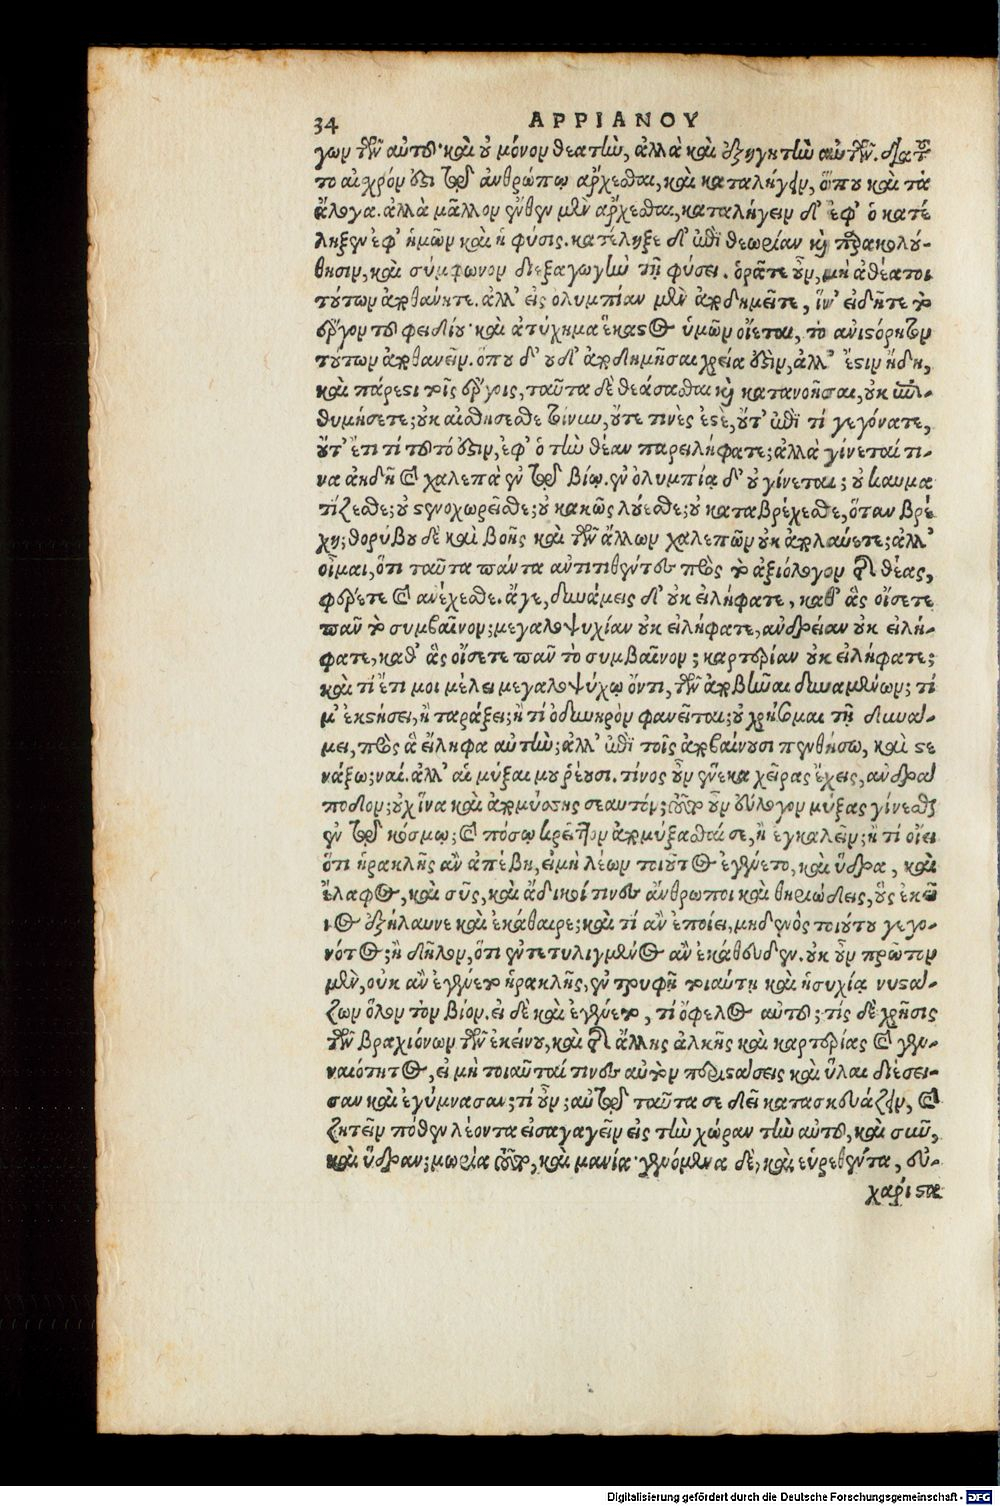 34 ΑΡΡΙΑΝΟΥ
γων τῶν αὐτοῦ· καὶ οὐ μόνον θεατὴν, ἀλλὰ καὶ ἐξηγητὴν αὐτῶν. διὰ τοῦ-
το αἰσχρόν ἐστι τῷ ἀνθρώπῳ ἄρχεσθαι, καὶ καταλήγειν, ὅπου καὶ τὰ
ἄλογα. ἀλλὰ μᾶλλον ἔνθεν μὲν ἄρχεσθαι, καταλήγειν δ' ἐφ' ὃ κατέ
ληξεν ἐφ' ἡμῶν καὶ ἡ φύσις. κατέληξε δ' ἐπὶ θεωρίαν καὶ παρακολού-
θησιν, καὶ σύμφωνον διεξαγωγὴν τῇ φύσει. ὁρᾶτε οὖν, μὴ ἀθέατοι
τούτων ἀποθάνητε. ἀλλ' εἰς ὀλυμπίαν μὲν ἀποδημεῖτε, ἵν' εἰδῆτε τὸ
ἔργον τοῦ φειδίου· καὶ ἀτύχημα ἕκαστος ὑμῶν οἴεται, τὸ ἀνιστόρητον
τούτων ἀποθανεῖν. ὅπου δ' οὐδ' ἀποδημῆσαι χρεία ἐστὶν, ἀλλ' ἔστιν ἤδη,
καὶ πάρεστι τοῖς ἔργοις, ταῦτα δὲ θεάσασθαι καὶ κατανοῆσαι, οὐκ ἐπι-
θυμήσετε; οὐκ αἰσθήσεσθε τοίνυν, οὔτε τινὲς ἐστὲ, οὔτ' ἐπὶ τί γεγόνατε,
οὔτ' ἔτι τί τοῦτό ἐστιν, ἐφ' ὃ τὴν θέαν παρειλήφατε; ἀλλὰ γίνεταί τι-
να ἀηδῆ καὶ χαλεπὰ ἐν τῷ βίῳ. ἐν ὀλυμπίᾳ δ' οὐ γίνεται; οὐ καυμα
τίζεσθε; οὐ στενοχωρεῖσθε; οὐ κακῶς λούεσθε; οὐ καταβρέχεσθε, ὅταν βρέ
χῃ; θορύβου δὲ καὶ βοῆς καὶ τῶν ἄλλων χαλεπῶν οὐκ ἀπολαύετε; ἀλλ'
οἶμαι, ὅτι ταῦτα πάντα ἀντιτιθέντες πρὸς τὸ ἀξιόλογον τῆς θέας,
φέρετε καὶ ἀνέχεσθε. ἄγε, δυνάμεις δ' οὐκ εἰλήφατε, καθ' ἃς οἴσετε
πᾶν τὸ συμβαῖνον; μεγαλοψυχίαν οὐκ εἰλήφατε, ἀνδρείαν οὐκ εἰλή-
φατε, καθ' ἃς οἴσετε πᾶν τὸ συμβαῖνον; καρτερίαν οὐκ εἰλήφατε;
καὶ τί ἔτι μοι μέλει μεγαλοψύχῳ ὄντι, τῶν ἀποβῆναι δυναμένων; τί
μ' ἐκστήσει, ἢ ταράξει; ἢ τί ὀδυνηρὸν φανεῖται; οὐ χρήσομαι τῇ δυνά-
μει, πρὸς ἃ εἴληφα αὐτήν; ἀλλ' ἐπὶ τοῖς ἀποβαίνουσι πενθήσω, καὶ στε
νάξω; ναί. ἀλλ' αἱ μύξαι μου ῥέουσι. τίνος οὖν ἕνεκα χεῖρας ἔχεις, ἀνδρά
ποδον; οὐχ ἵνα καὶ ἀπομύσσης σεαυτόν; τοῦτο οὖν εὔλογον μύξας γίνεσθαι
ἐν τῷ κόσμῳ; καὶ πόσῳ κρεῖττον ἀπομύξασθαί σε, ἢ ἐγκαλεῖν; ἢ τί οἴει
ὅτι ἡρακλῆς ἂν ἀπέβη, εἰ μὴ λέων τοιοῦτος ἐγένετο, καὶ ὕδρα, καὶ
ἔλαφος, καὶ σῦς, καὶ ἄδικοί τινες ἄνθρωποι καὶ θηριώδεις, οὓς ἐκεῖ
νος ἐξήλαυνε καὶ ἐκάθαιρε; καὶ τί ἂν ἐποίει, μηδενὸς τοιούτου γεγο-
νότος; ἢ δῆλον, ὅτι ἐντετυλιγμένος ἂν ἐκάθευδεν. οὐκ οὖν πρῶτον
μὲν, οὐκ ἂν ἐγένετο ἡρακλῆς, ἐν τρυφῇ τοιαύτῃ καὶ ἡσυχίᾳ νυστά-
ζων ὅλον τὸν βίον. εἰ δὲ καὶ ἐγένετο, τί ὄφελος αὐτοῦ; τίς δὲ χρῆσις
τῶν βραχιόνων τῶν ἐκείνου, καὶ τῆς ἄλλης ἀλκῆς καὶ καρτερίας καὶ γεν-
ναιότητος, εἰ μὴ τοιαῦταί τινες αὐτὸν περιστάσεις καὶ ὗλαι διέσει-
σαν καὶ ἐγύμνασαν; τί οὖν; αὐτῷ ταῦτα σε δεῖ κατασκευάζειν, καὶ
ζητεῖν πόθεν λέοντα εἰσαγαγεῖν εἰς τὴν χώραν τὴν αὐτοῦ, καὶ σῦν,
καὶ ὕδραν; μωρία τοῦτο, καὶ μανία· γενόμενα δὲ, καὶ εὑρεθέντα, εὔ-
χρηστα
Digitalisierung gefördert durch die Deutsche Forschungsgemeinschaft - DFG